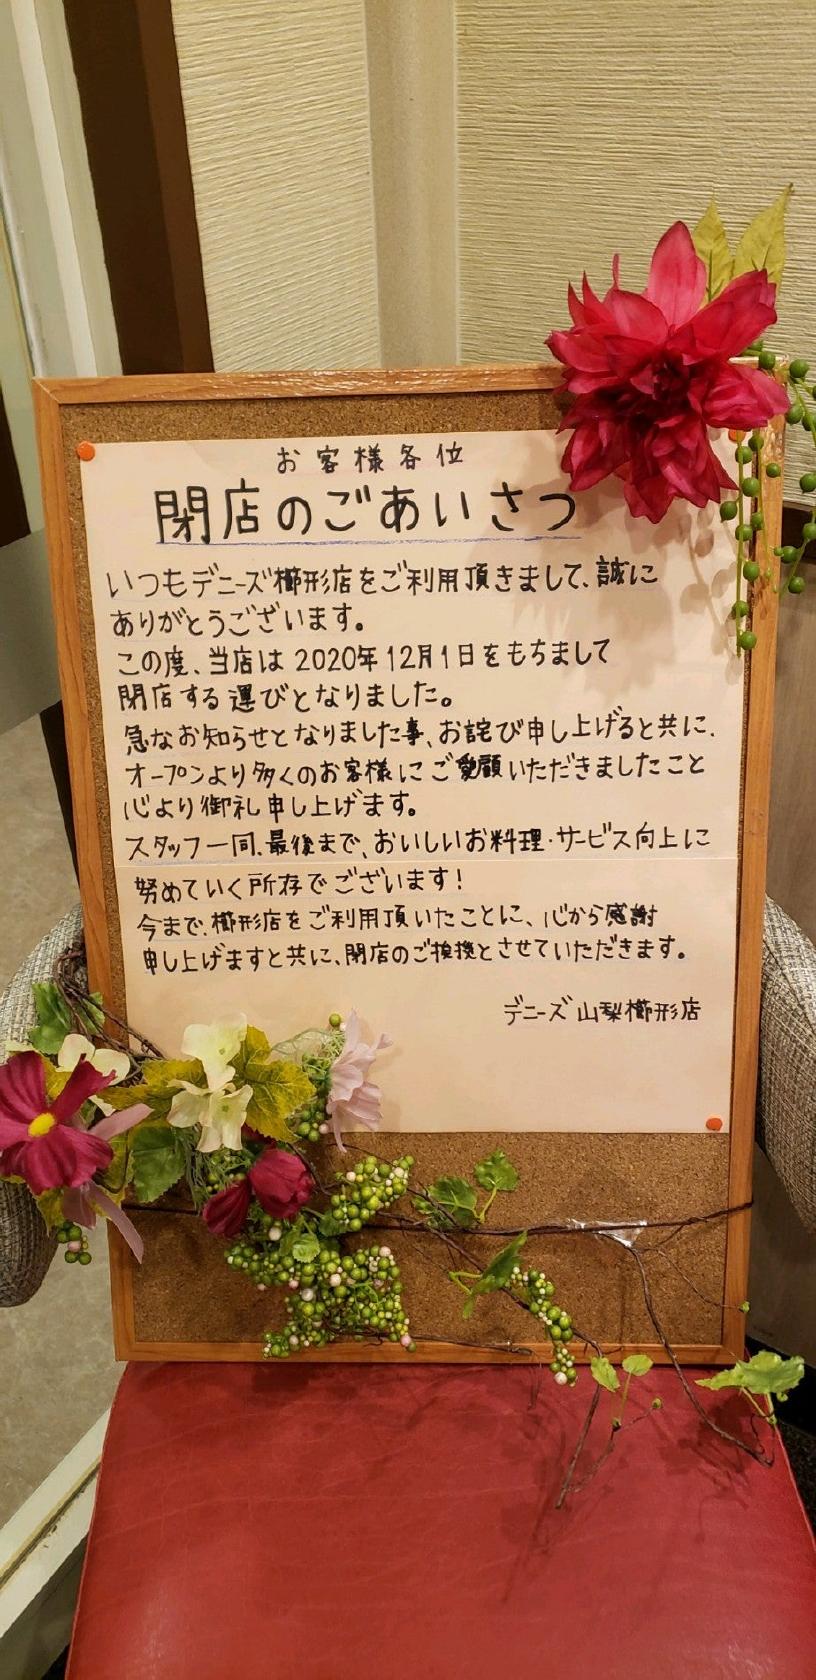 お客様各位
閉店のごあいさつ
いつもデニーズ櫛形店をご利用頂きまして、誠に
ありがとうございます。
この度、当店は2020年12月1日をもちまして
閉店する運びとなりました。
急なお知らせとなりました事、お詫び申し上げると共に、
オープンより多くのお客様にご愛顧いただきましたこと
心より御礼申し上げます。
スタッフ一同、最後まで、おいしいお料理・サービス向上に
努めていく所存でございます!
今まで、櫛形店をご利用頂いたことに、心から感謝
申し上げますと共に、閉店のご挨拶とさせていただきます。
デニーズ山梨櫛形店